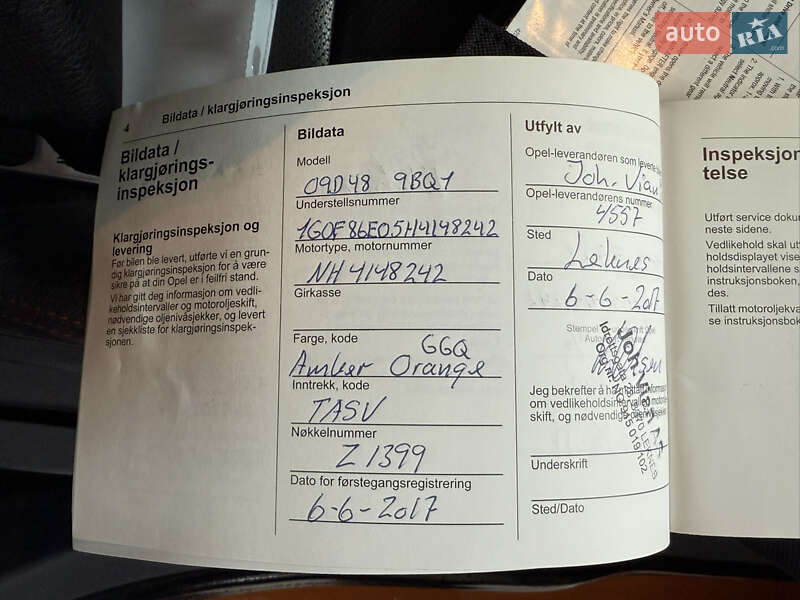 auto RIA .com
4 Bildata / klargjøringsinspeksjon
Bildata /
klargjørings-
inspeksjon
Klargjøringsinspeksjon og
levering
Før bilen ble levert, utførte vi en grun-
dig klargjøringsinspeksjon for å være
sikre på at din Opel er i feilfri stand.
Vi har gitt deg informasjon om vedli-
keholdsintervaller og motoroljeskift,
nødvendige oljenivåsjekker, og levert
en sjekkliste for klargjøringsinspek-
sjonen.
Bildata
Modell
09D48 9BQ1
Understellsnummer
1G0F86E05H4148242
Motortype, motornummer
NH4148242
Girkasse
Farge, kode
GGQ
Amker Orange
Inntrekk, kode
TASV
Nøkkelnummer
Z 1399
Dato for førstegangsregistrering
6-6-2017
Utfylt av
Opel-leverandøren som leverte
Joh. Vian
Opel-leverandørens nummer
4557
Sted
Leknes
Dato
6-6-2017
Stempel
Joh. Vian
Jeg bekrefter å ha mottatt informasjon
om vedlikeholdsintervaller, motorolje-
skift, og nødvendige oljenivåsjekker
Underskrift
Sted/Dato
Inspeksjon
telse
Utført service doku
neste sidene.
Vedlikehold skal ut
holdsdisplayet vise
holdsintervallene s
instruksjonsboken,
des.
Tillatt motoroljekva
se instruksjonsbok